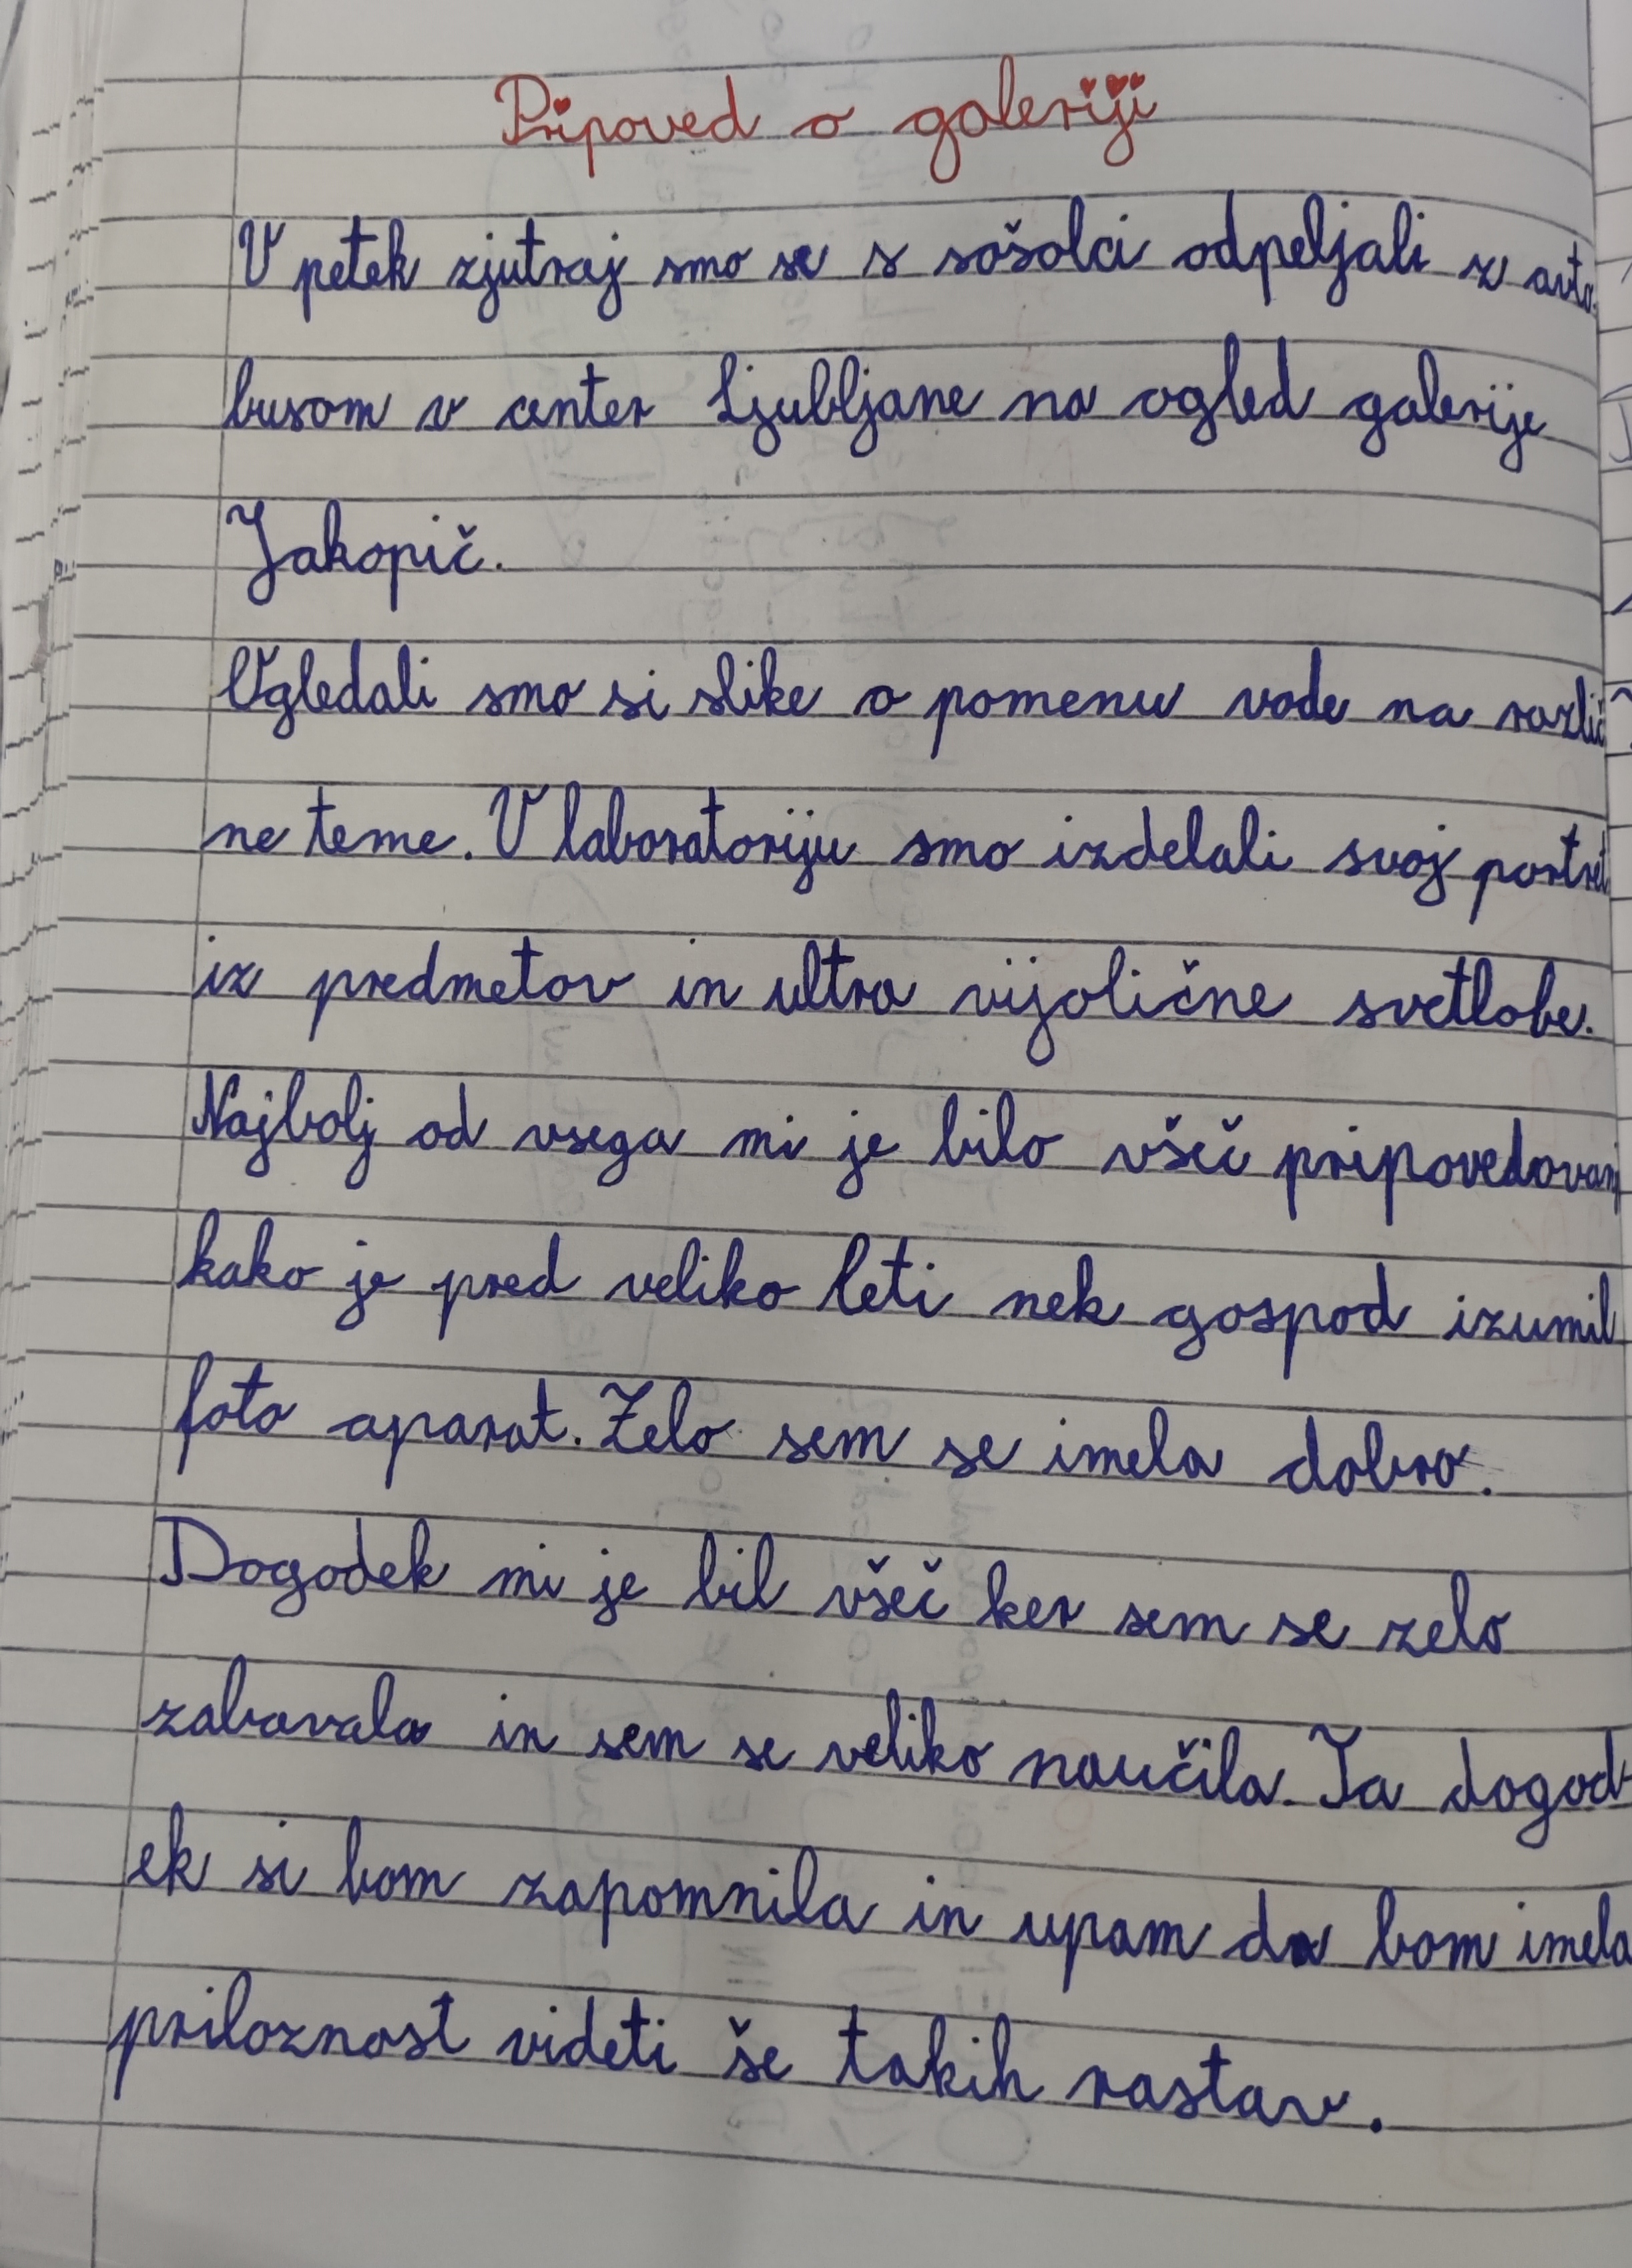 Pripoved o galeriji
V petek zjutraj smo se s sošolci odpeljali z avto-
busom v center Ljubljane na ogled galerije
Jakopič.
Ogledali smo si slike o pomenu vode na različ
ne teme. V laboratoriju smo izdelali svoj portret
iz predmetov in ultra vijolične svetlobe.
Najbolj od vsega mi je bilo všeč pripovedovanj
kako je pred veliko leti nek gospod izumil
foto aparat. Zelo sem se imela dobro.
Dogodek mi je bil všeč ker sem se zelo
zabavala in sem se veliko naučila. Ta dogod-
ek si bom zapomnila in upam da bom imela
priloznost videti še takih rastav.